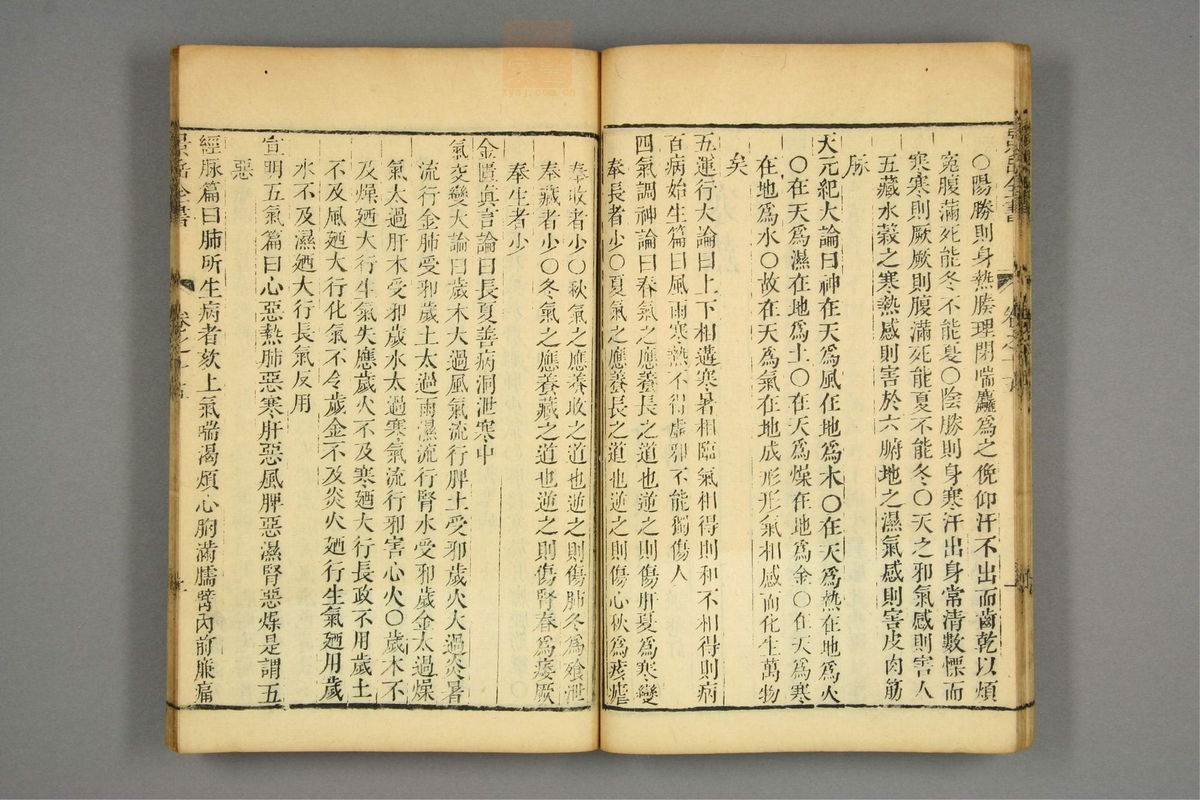 ○陽勝則身熱腠理閉喘麤爲之俛仰汗不出而齒乾以煩
寃腹滿死能冬不能夏○陰勝則身寒汗出身常清數慄而
寒寒則厥厥則腹滿死能夏不能冬○天之邪氣感則害人
五藏水糓之寒熱感則害於六腑地之濕氣感則害皮肉筋
脉
天元紀大論曰神在天爲風在地爲木○在天爲熱在地爲火
○在天爲濕在地爲土○在天爲燥在地爲金○在天爲寒
在地爲水○故在天爲氣在地成形形氣相感而化生萬物
矣
五運行大論曰上下相遘寒暑相臨氣相得則和不相得則病
百病始生篇曰風雨寒熱不得虛邪不能獨傷人
四氣調神論曰春氣之應養長之道也逆之則傷肝夏爲寒變
奉長者少○夏氣之應養長之道也逆之則傷心秋爲痎瘧
奉收者少○秋氣之應養收之道也逆之則傷肺冬爲飱泄
奉藏者少○冬氣之應養藏之道也逆之則傷腎春爲痿厥
奉生者少
金匱眞言論曰長夏善病洞泄寒中
氣交變大論曰歲木太過風氣流行脾土受邪歲火太過炎暑
流行金肺受邪歲土太過雨濕流行腎水受邪歲金太過燥
氣太過肝木受邪歲水太過寒氣流行邪害心火○歲木不
及燥廼大行生氣失應歲火不及寒廼大行長政不用歲土
不及風廼大行化氣不令歲金不及炎火廼行生氣廼用歲
水不及濕廼大行長氣反用
宣明五氣篇曰心惡熱肺惡寒肝惡風脾惡濕腎惡燥是謂五
惡
經脉篇曰肺所生病者欬上氣喘渴煩心胸滿臑臂內前廉痛
景岳全書
卷之一
景岳全書
卷之一